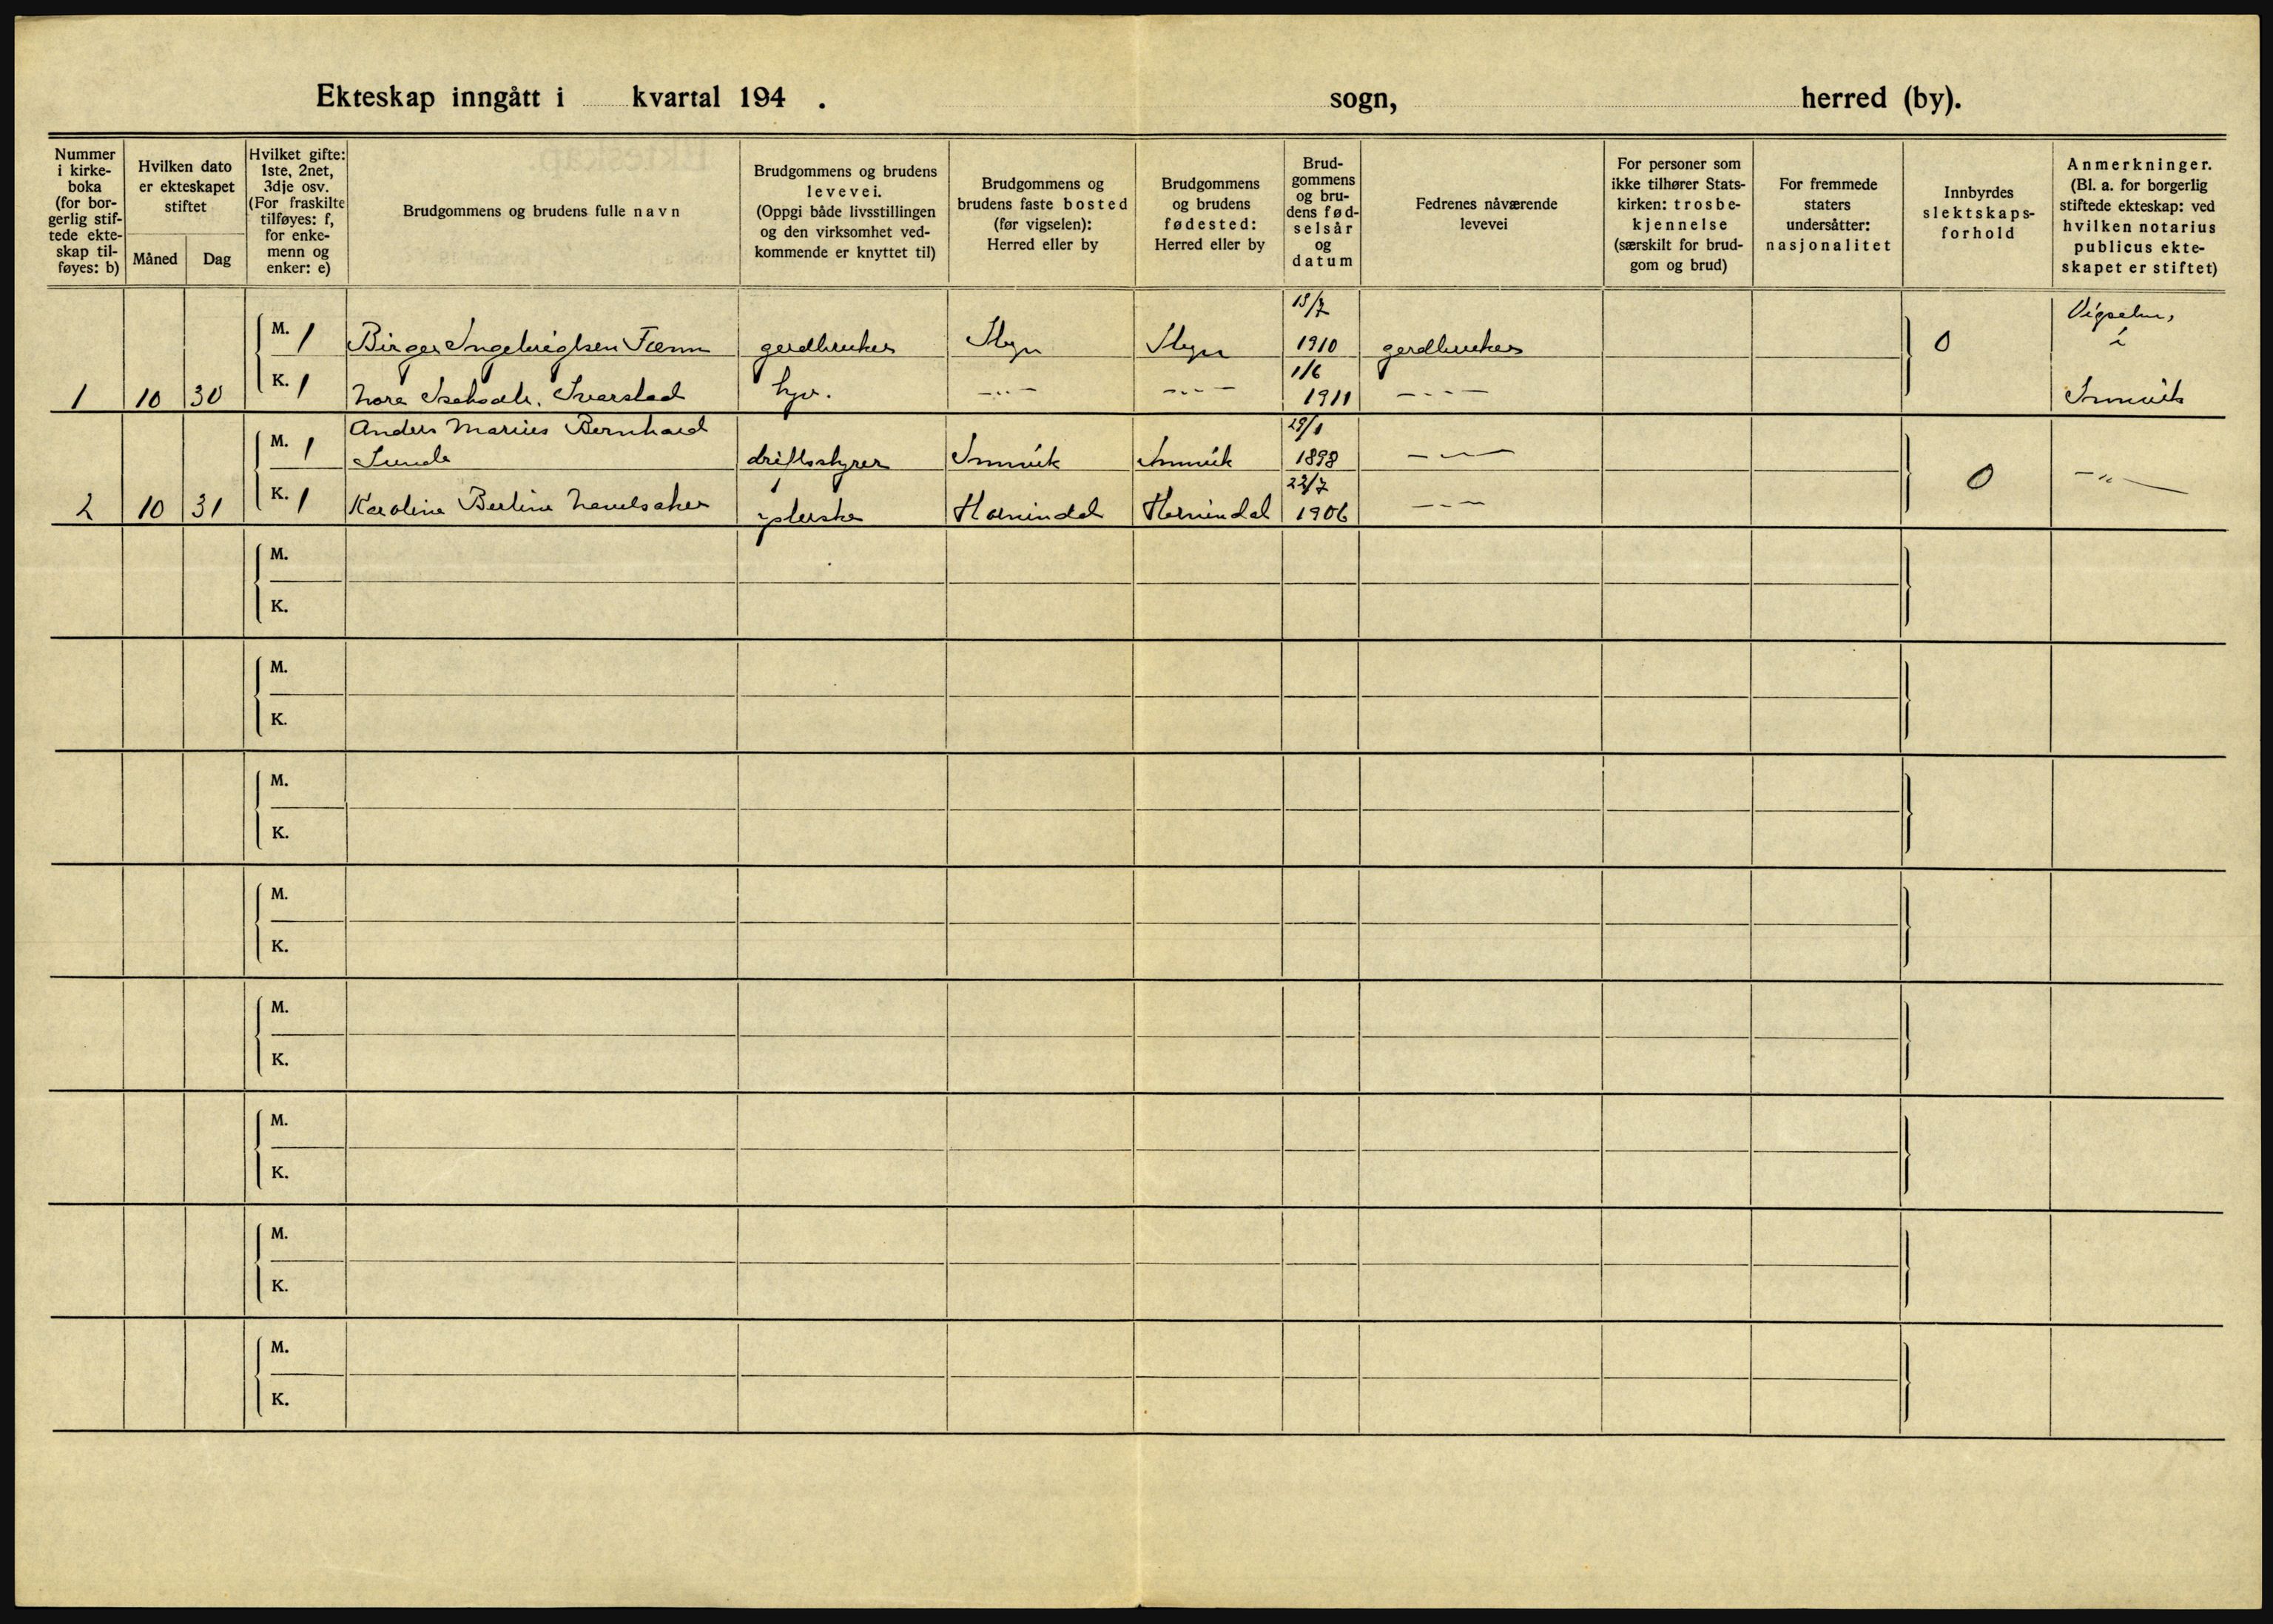 Ekteskap inngått i kvartal 194 . sogn, herred (by).
Nummer i kirke-boka (for bor-gerlig stif-tede ekte-skap til-føyes: b)
Hvilken dato er ekteskapet stiftet
Måned Dag
Hvilket gifte: 1ste, 2net, 3dje osv. (For fraskilte tilføyes: f, for enke-menn og enker: e)
Brudgommens og brudens fulle navn
Brudgommens og brudens levevei. (Oppgi både livsstillingen og den virksomhet ved-kommende er knyttet til)
Brudgommens og brudens faste bosted (før vigselen): Herred eller by
Brudgommens og brudens fødested: Herred eller by
Brud-gommens og bru-dens fød-selsår og datum
Fedrenes nåværende levevei
For personer som ikke tilhører Stats-kirken: trosbe-kjennelse (særskilt for brud-gom og brud)
For fremmede staters undersåtter: nasjonalitet
Innbyrdes slektskaps-forhold
Anmerkninger. (Bl. a. for borgerlig stiftede ekteskap: ved hvilken notarius publicus ekte-skapet er stiftet)
M. 1 Birger Ingebrigtsen gardbruker Stryn Stryn 1910 gardbruker 0 i
1 10 30 K. 1 1/6 1911 Innvik
Anders Marius Bernhard
M. 1 Sunde driftsstyrer Innvik Innvik 1898
2 10 31 K. 1 Karoline Berline Hornindal Hornindal 22/7 1906 0
M.
K.
M.
K.
M.
K.
M.
K.
M.
K.
M.
K.
M.
K.
M.
K.